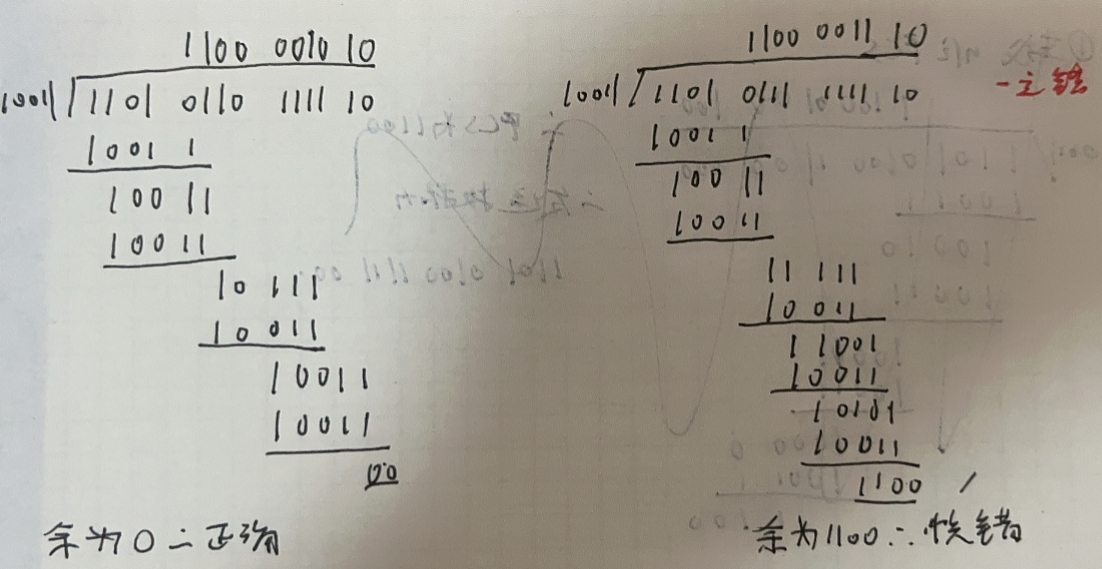 1100 0010 10
10011 1101 0110 1111 10
1001 1
100 11
100 11
10 111
10 011
10011
10011
00
余为0∴正确
1100 0011 10
10011 1101 0111 1111 10
一定错
1001 1
100 11
100 11
11 111
10 011
11001
10011
10101
10011
1100
余为1100∴错